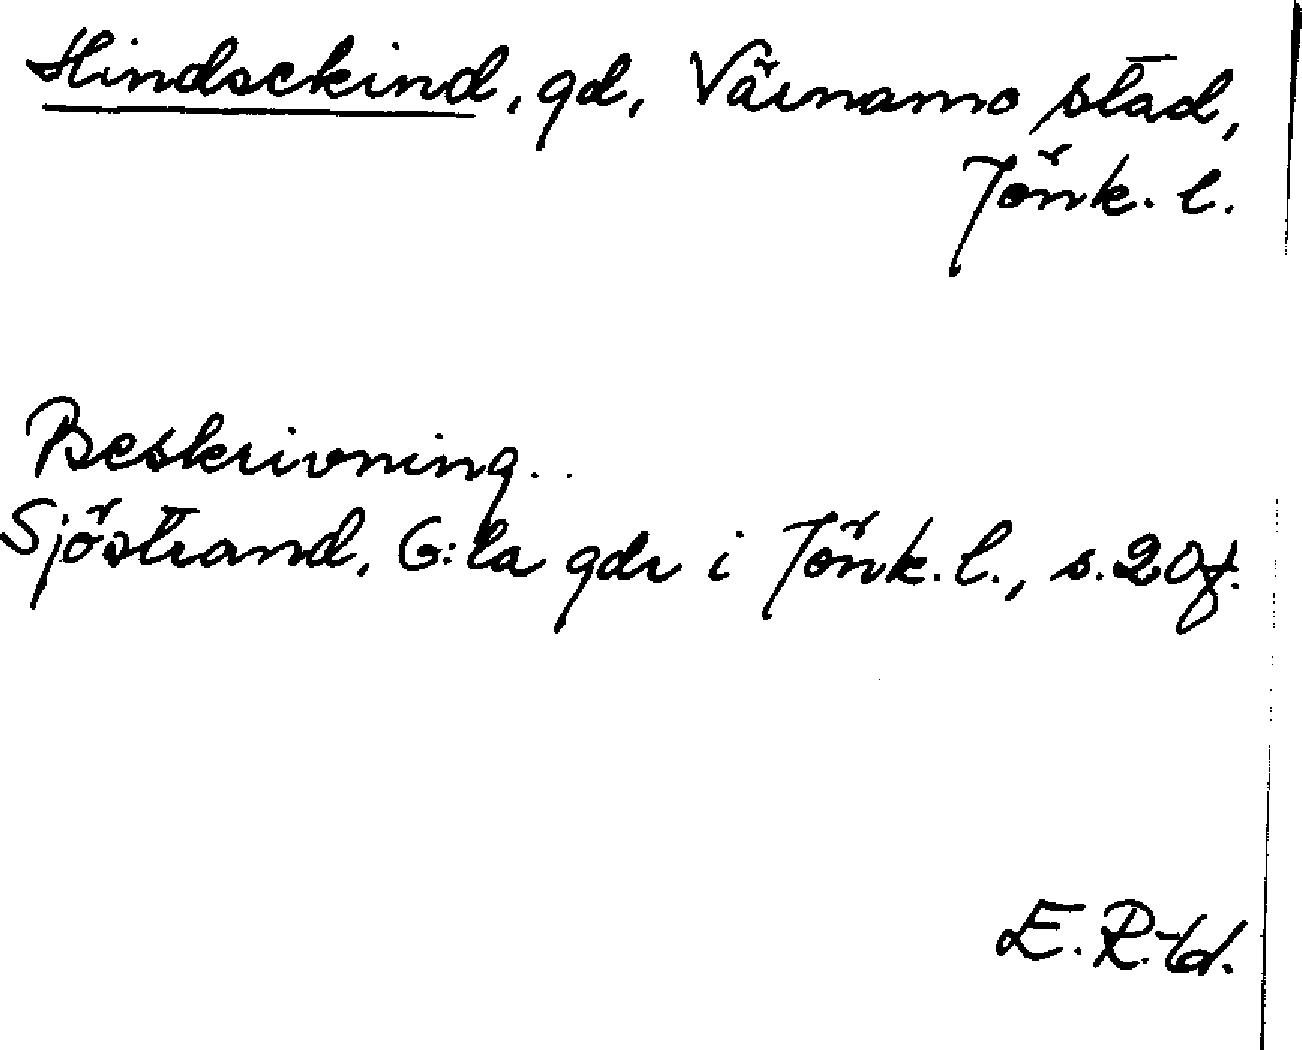 Hindsekind, gd, Värnamo stad,
Jönk. l.
Beskrivning..
Sjöstrand, G:la gdr i Jönk. l., s. 20f.
E. R.